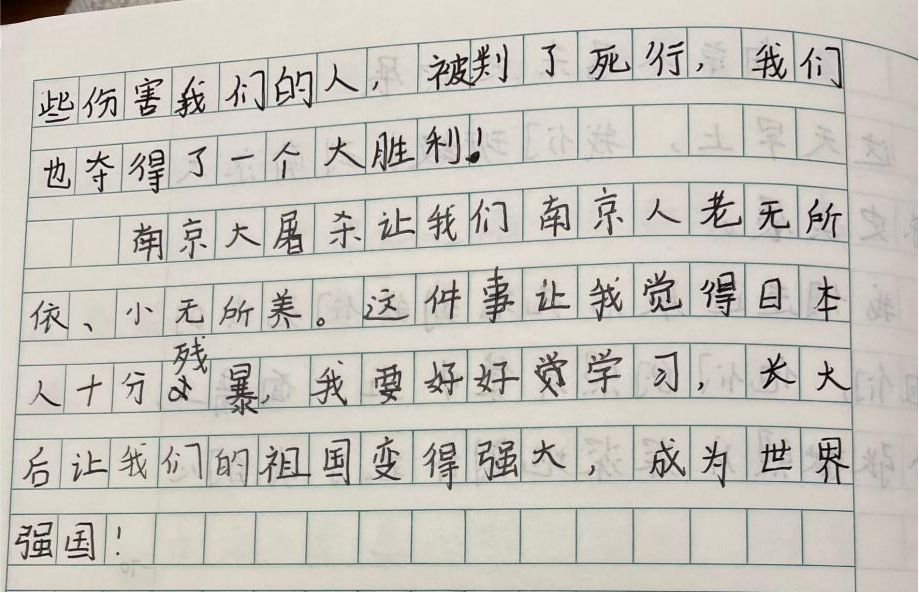 些伤害我们的人，被判了死行，我们
也夺得了一个大胜利！
南京大屠杀让我们南京人老无所
依、小无所养。这件事让我觉得日本
人十分残暴，我要好好学习，长大
后让我们的祖国变得强大，成为世界
强国！